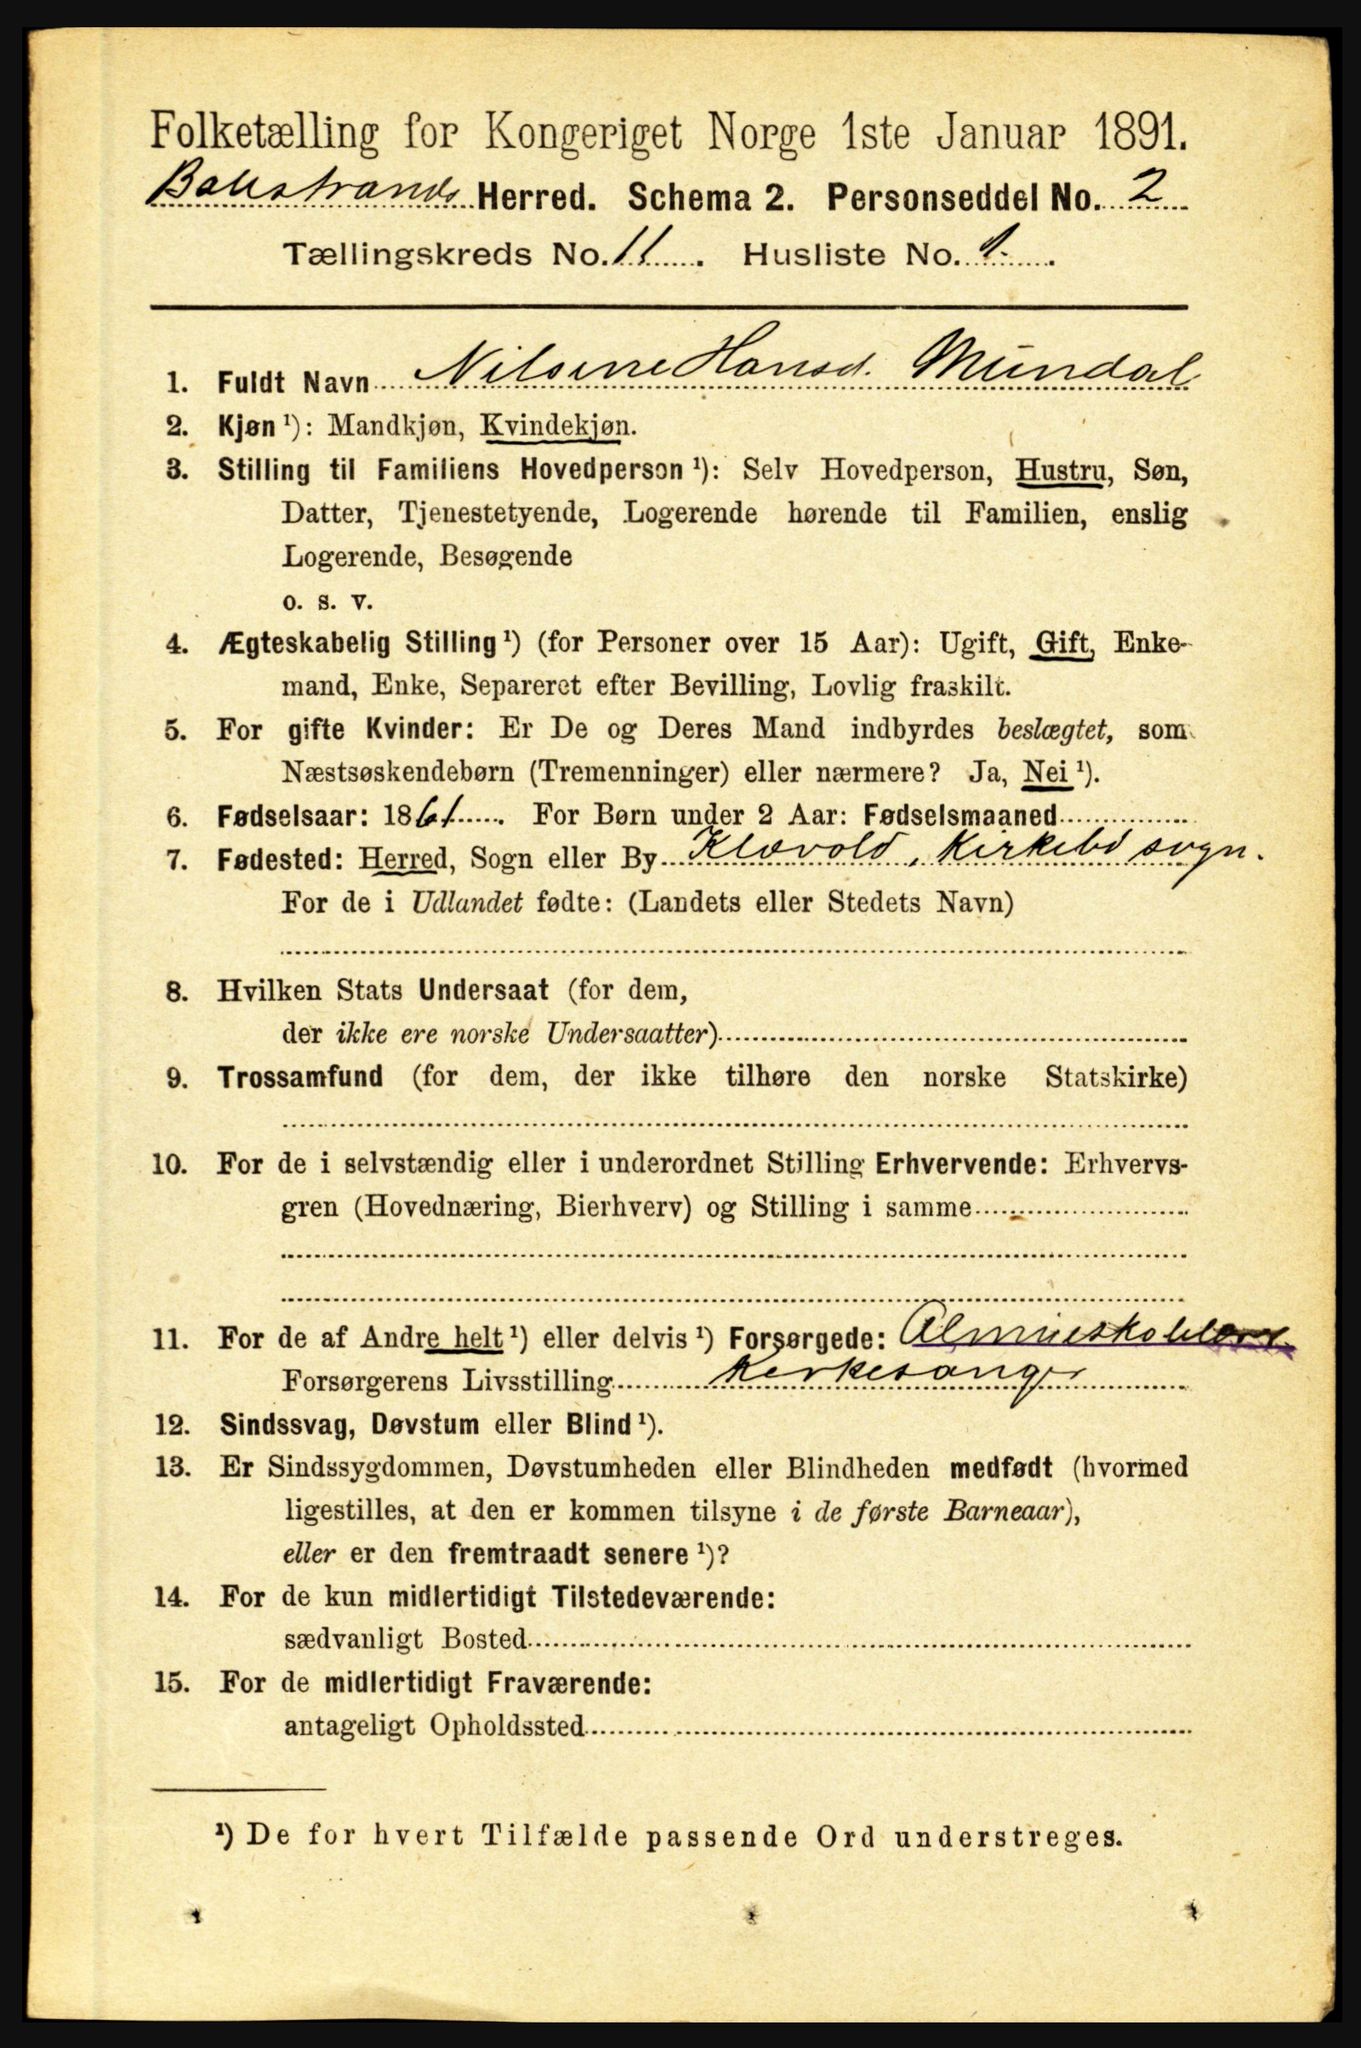 Folketælling for Kongeriget Norge 1ste Januar 1891.
Balestrands Herred. Schema 2. Personseddel No. 2
Tællingskreds No. 11. Husliste No. 1.
1. Fuldt Navn Nilsine Hansd. Mundal
2. Kjøn ¹): Mandkjøn, Kvindekjøn.
3. Stilling til Familiens Hovedperson ¹): Selv Hovedperson, Hustru, Søn,
Datter, Tjenestetyende, Logerende hørende til Familien, enslig
Logerende, Besøgende
o. s. v.
4. Ægteskabelig Stilling ¹) (for Personer over 15 Aar): Ugift, Gift, Enke-
mand, Enke, Separeret efter Bevilling, Lovlig fraskilt.
5. For gifte Kvinder: Er De og Deres Mand indbyrdes beslægtet, som
Næstsøskendebørn (Tremenninger) eller nærmere? Ja, Nei ¹).
6. Fødselsaar: 1861. For Børn under 2 Aar: Fødselsmaaned
7. Fødested: Herred, Sogn eller By Klævold, Kirkebø sogn.
For de i Udlandet fødte: (Landets eller Stedets Navn)
8. Hvilken Stats Undersaat (for dem,
der ikke ere norske Undersaatter)
9. Trossamfund (for dem, der ikke tilhøre den norske Statskirke)
10. For de i selvstændig eller i underordnet Stilling Erhvervende: Erhvervs-
gren (Hovednæring, Bierhverv) og Stilling i samme
11. For de af Andre helt ¹) eller delvis ¹) Forsørgede:
Forsørgerens Livsstilling Kirkesanger
12. Sindssvag, Døvstum eller Blind ¹).
13. Er Sindssygdommen, Døvstumheden eller Blindheden medfødt (hvormed
ligestilles, at den er kommen tilsyne i de første Barneaar),
eller er den fremtraadt senere ¹)?
14. For de kun midlertidigt Tilstedeværende:
sædvanligt Bosted
15. For de midlertidigt Fraværende:
antageligt Opholdssted
¹) De for hvert Tilfælde passende Ord understreges.